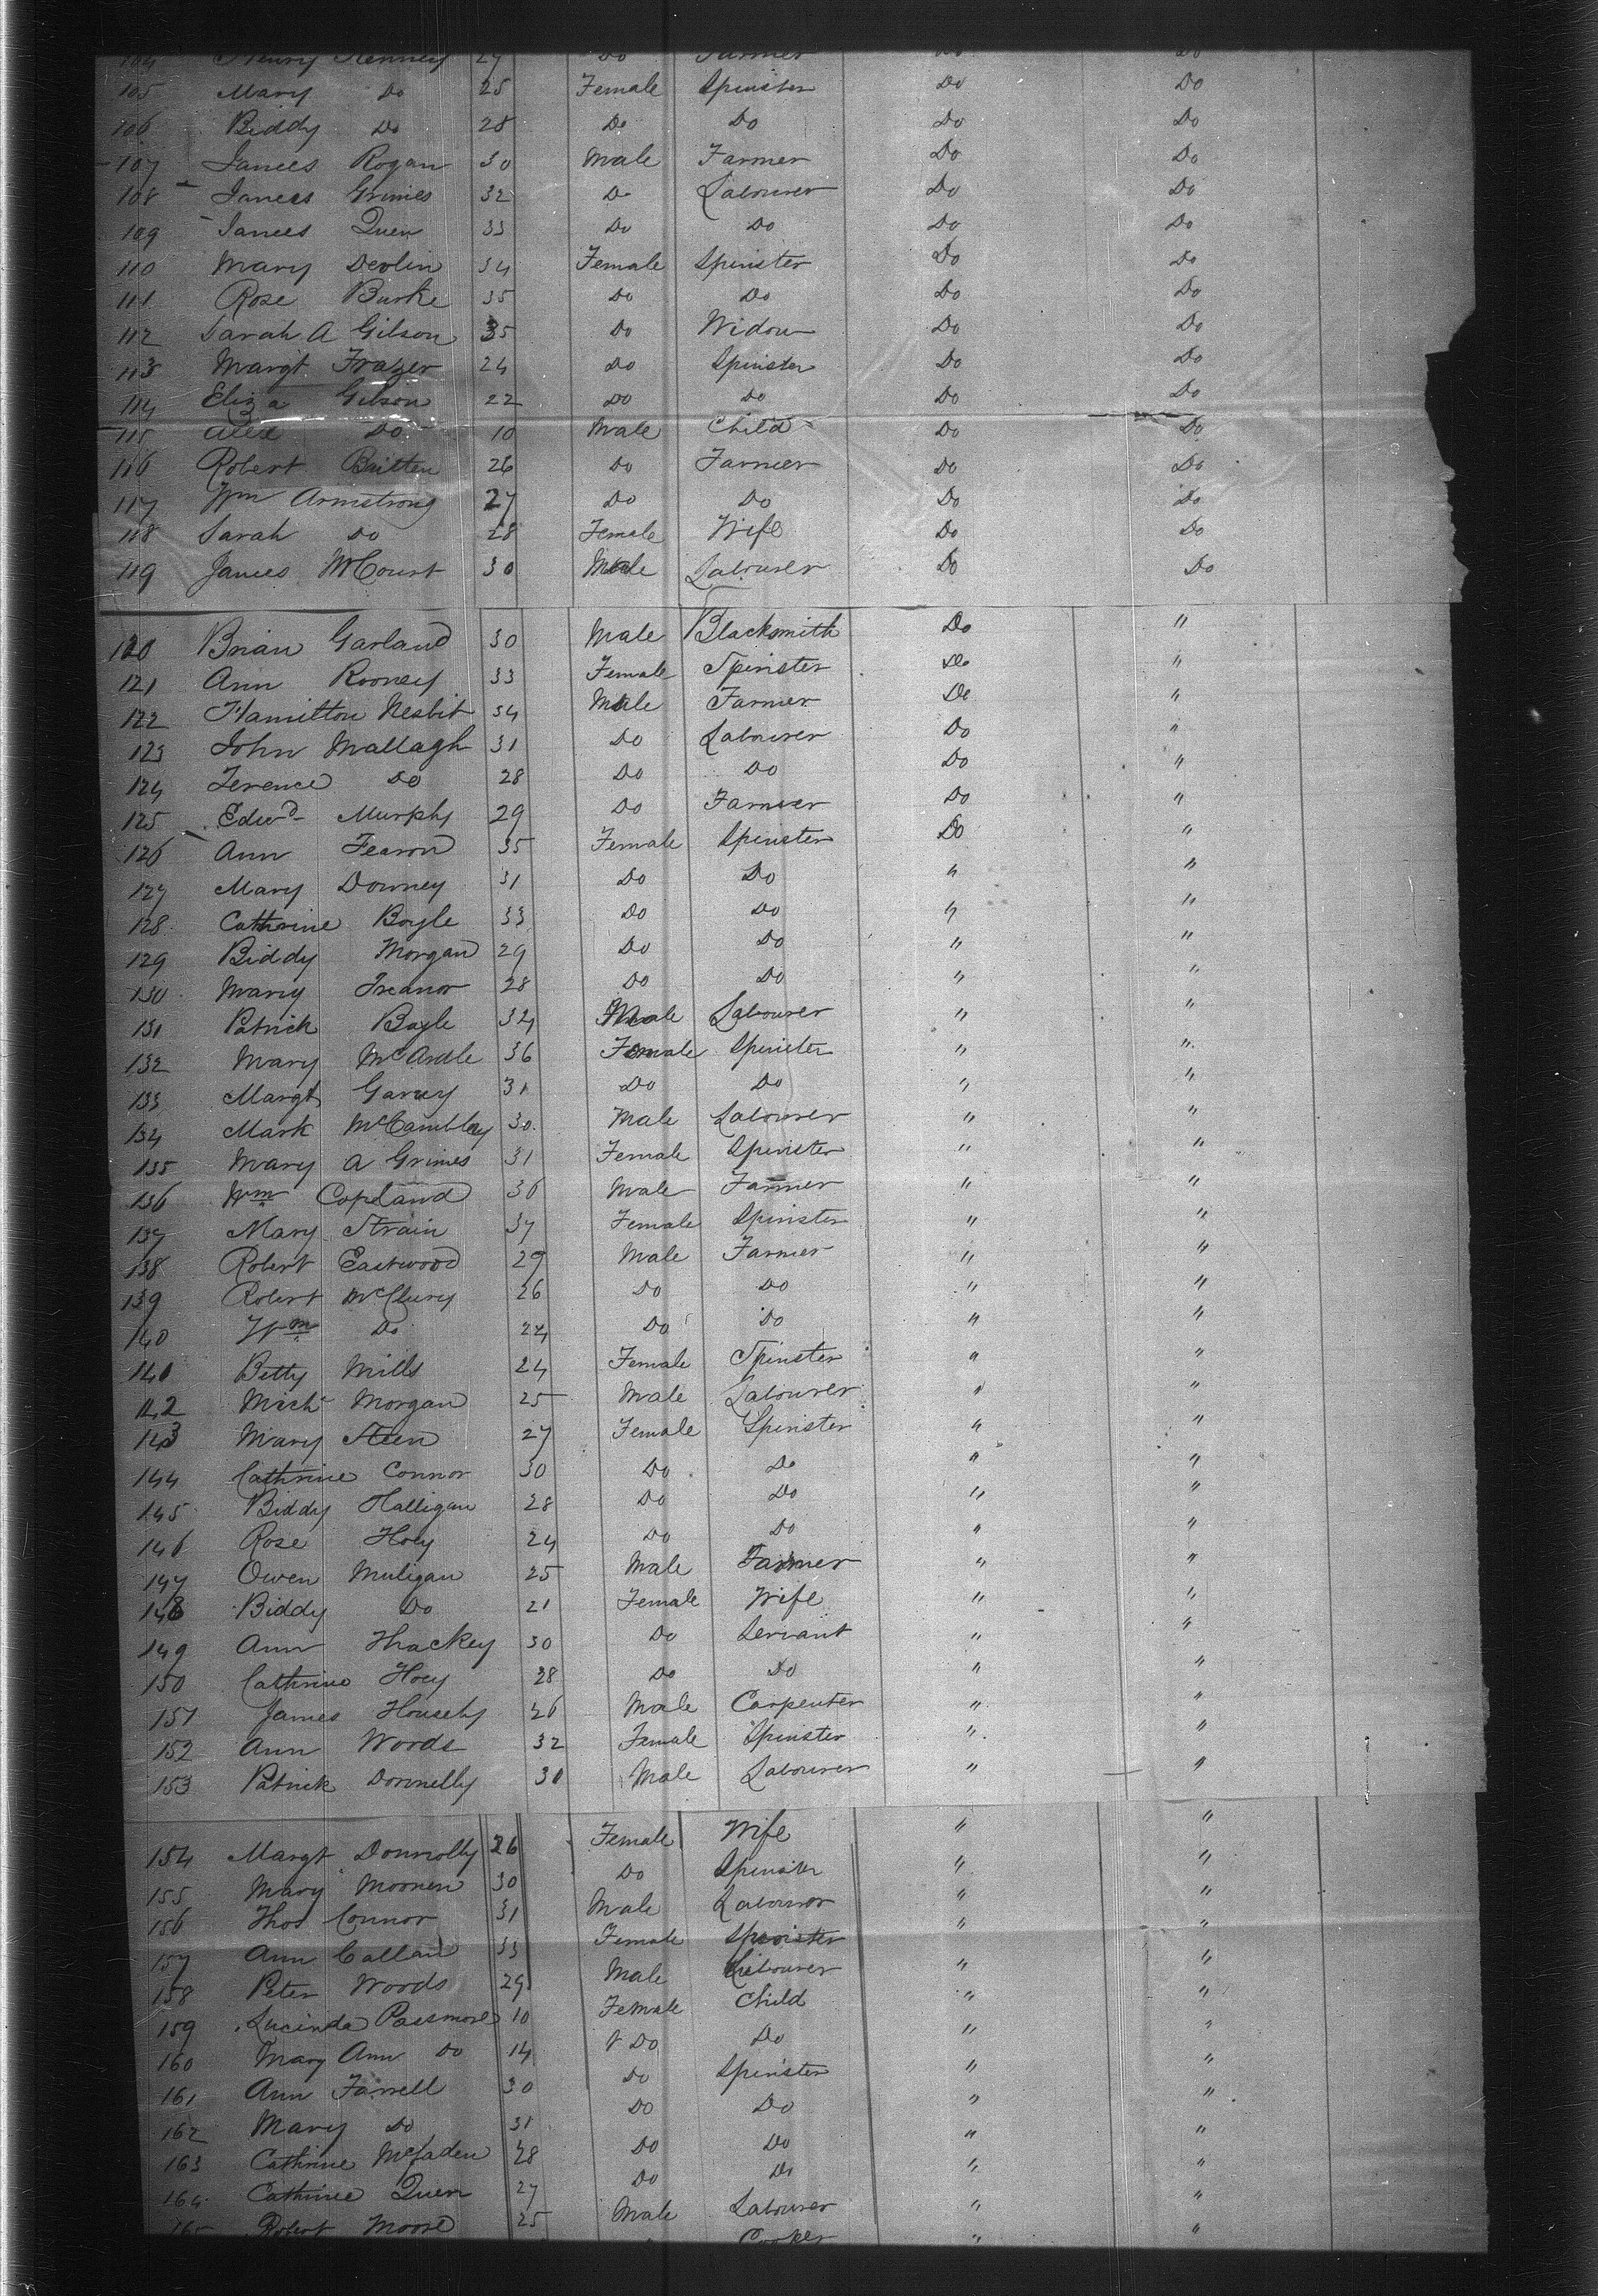 104 Henry Kenney 27 Do Farmer Do Do
105 Mary Do 25 Female Spinster Do Do
106 Biddy Do 28 Do Do Do Do
107 James Rogan 30 Male Farmer Do Do
108 James Grimes 32 Do Labourer Do Do
109 James Quen 33 Do Do Do Do
110 Mary Devlin 34 Female Spinster Do Do
111 Rose Burke 35 Do Do Do Do
112 Sarah A Gilson 35 Do Widow Do Do
113 Margt Frazer 24 Do Spinster Do Do
114 Eliza Gilson 22 Do Do Do Do
115 Alex Do 10 Male Child Do Do
116 Robert Britten 26 Do Farmer Do Do
117 Wm Armstrong 27 Do Do Do Do
118 Sarah Do 28 Female Wife Do Do
119 James McCourt 30 Male Labourer Do Do
120 Brian Garland 30 Male Blacksmith Do "
121 Ann Rooney 33 Female Spinster Do "
122 Hamilton Nesbit 34 Male Farmer Do "
123 John Mallagh 31 Do Labourer Do "
124 Terence Do 28 Do Do Do "
125 Edwd Murphy 29 Do Farmer Do "
126 Ann Fearon 35 Female Spinster Do "
127 Mary Downey 31 Do Do " "
128 Cathrine Boyle 33 Do Do " "
129 Biddy Morgan 29 Do Do " "
130 Mary Treanor 28 Do Do " "
131 Patrick Boyle 34 Male Labourer " "
132 Mary McArdle 36 Female Spinster " "
133 Margt Garvey 31 Do Do " "
134 Mark McCambley 30 Male Labourer " "
135 Mary A Grimes 31 Female Spinster " "
136 Wm Copeland 36 Male Farmer " "
137 Mary Strain 37 Female Spinster " "
138 Robert Eastwood 29 Male Farmer " "
139 Robert McClury 26 Do Do " "
140 Wm Do 24 Do Do " "
140 Betty Mills 24 Female Spinster " "
142 Mich Morgan 25 Male Labourer " "
143 Mary Steen 27 Female Spinster " "
144 Cathrine Connor 30 Do Do " "
145 Biddy Halligan 28 Do Do " "
146 Rose Hoey 24 Do Do " "
147 Owen Muligan 25 Male Farmer " "
148 Biddy Do 21 Female Wife " "
149 Ann Thackey 30 Do Servant " "
150 Cathrine Hoey 28 Do Do " "
151 James Househy 26 Male Carpenter " "
152 Ann Woods 32 Female Spinster " "
153 Patrick Donnelly 30 Male Labourer " "
154 Margt Donnolly 26 Female Wife " "
155 Mary Moonen 30 Do Spinster " "
156 Thos Connor 31 Male Labouror " "
157 Ann Callan 33 Female Spinster " "
158 Peter Woods 29 Male Labourer " "
159 Lucinda Passmore 10 Female Child " "
160 Mary Ann Do 14 Do Do " "
161 Ann Farrell 30 Do Spinster " "
162 Mary Do 31 Do Do " "
163 Cathrine McFaden 28 Do Do " "
164 Cathrine Quen 27 Do Do " "
165 Robert Moore 25 Male Labourer " "
Cooker " "